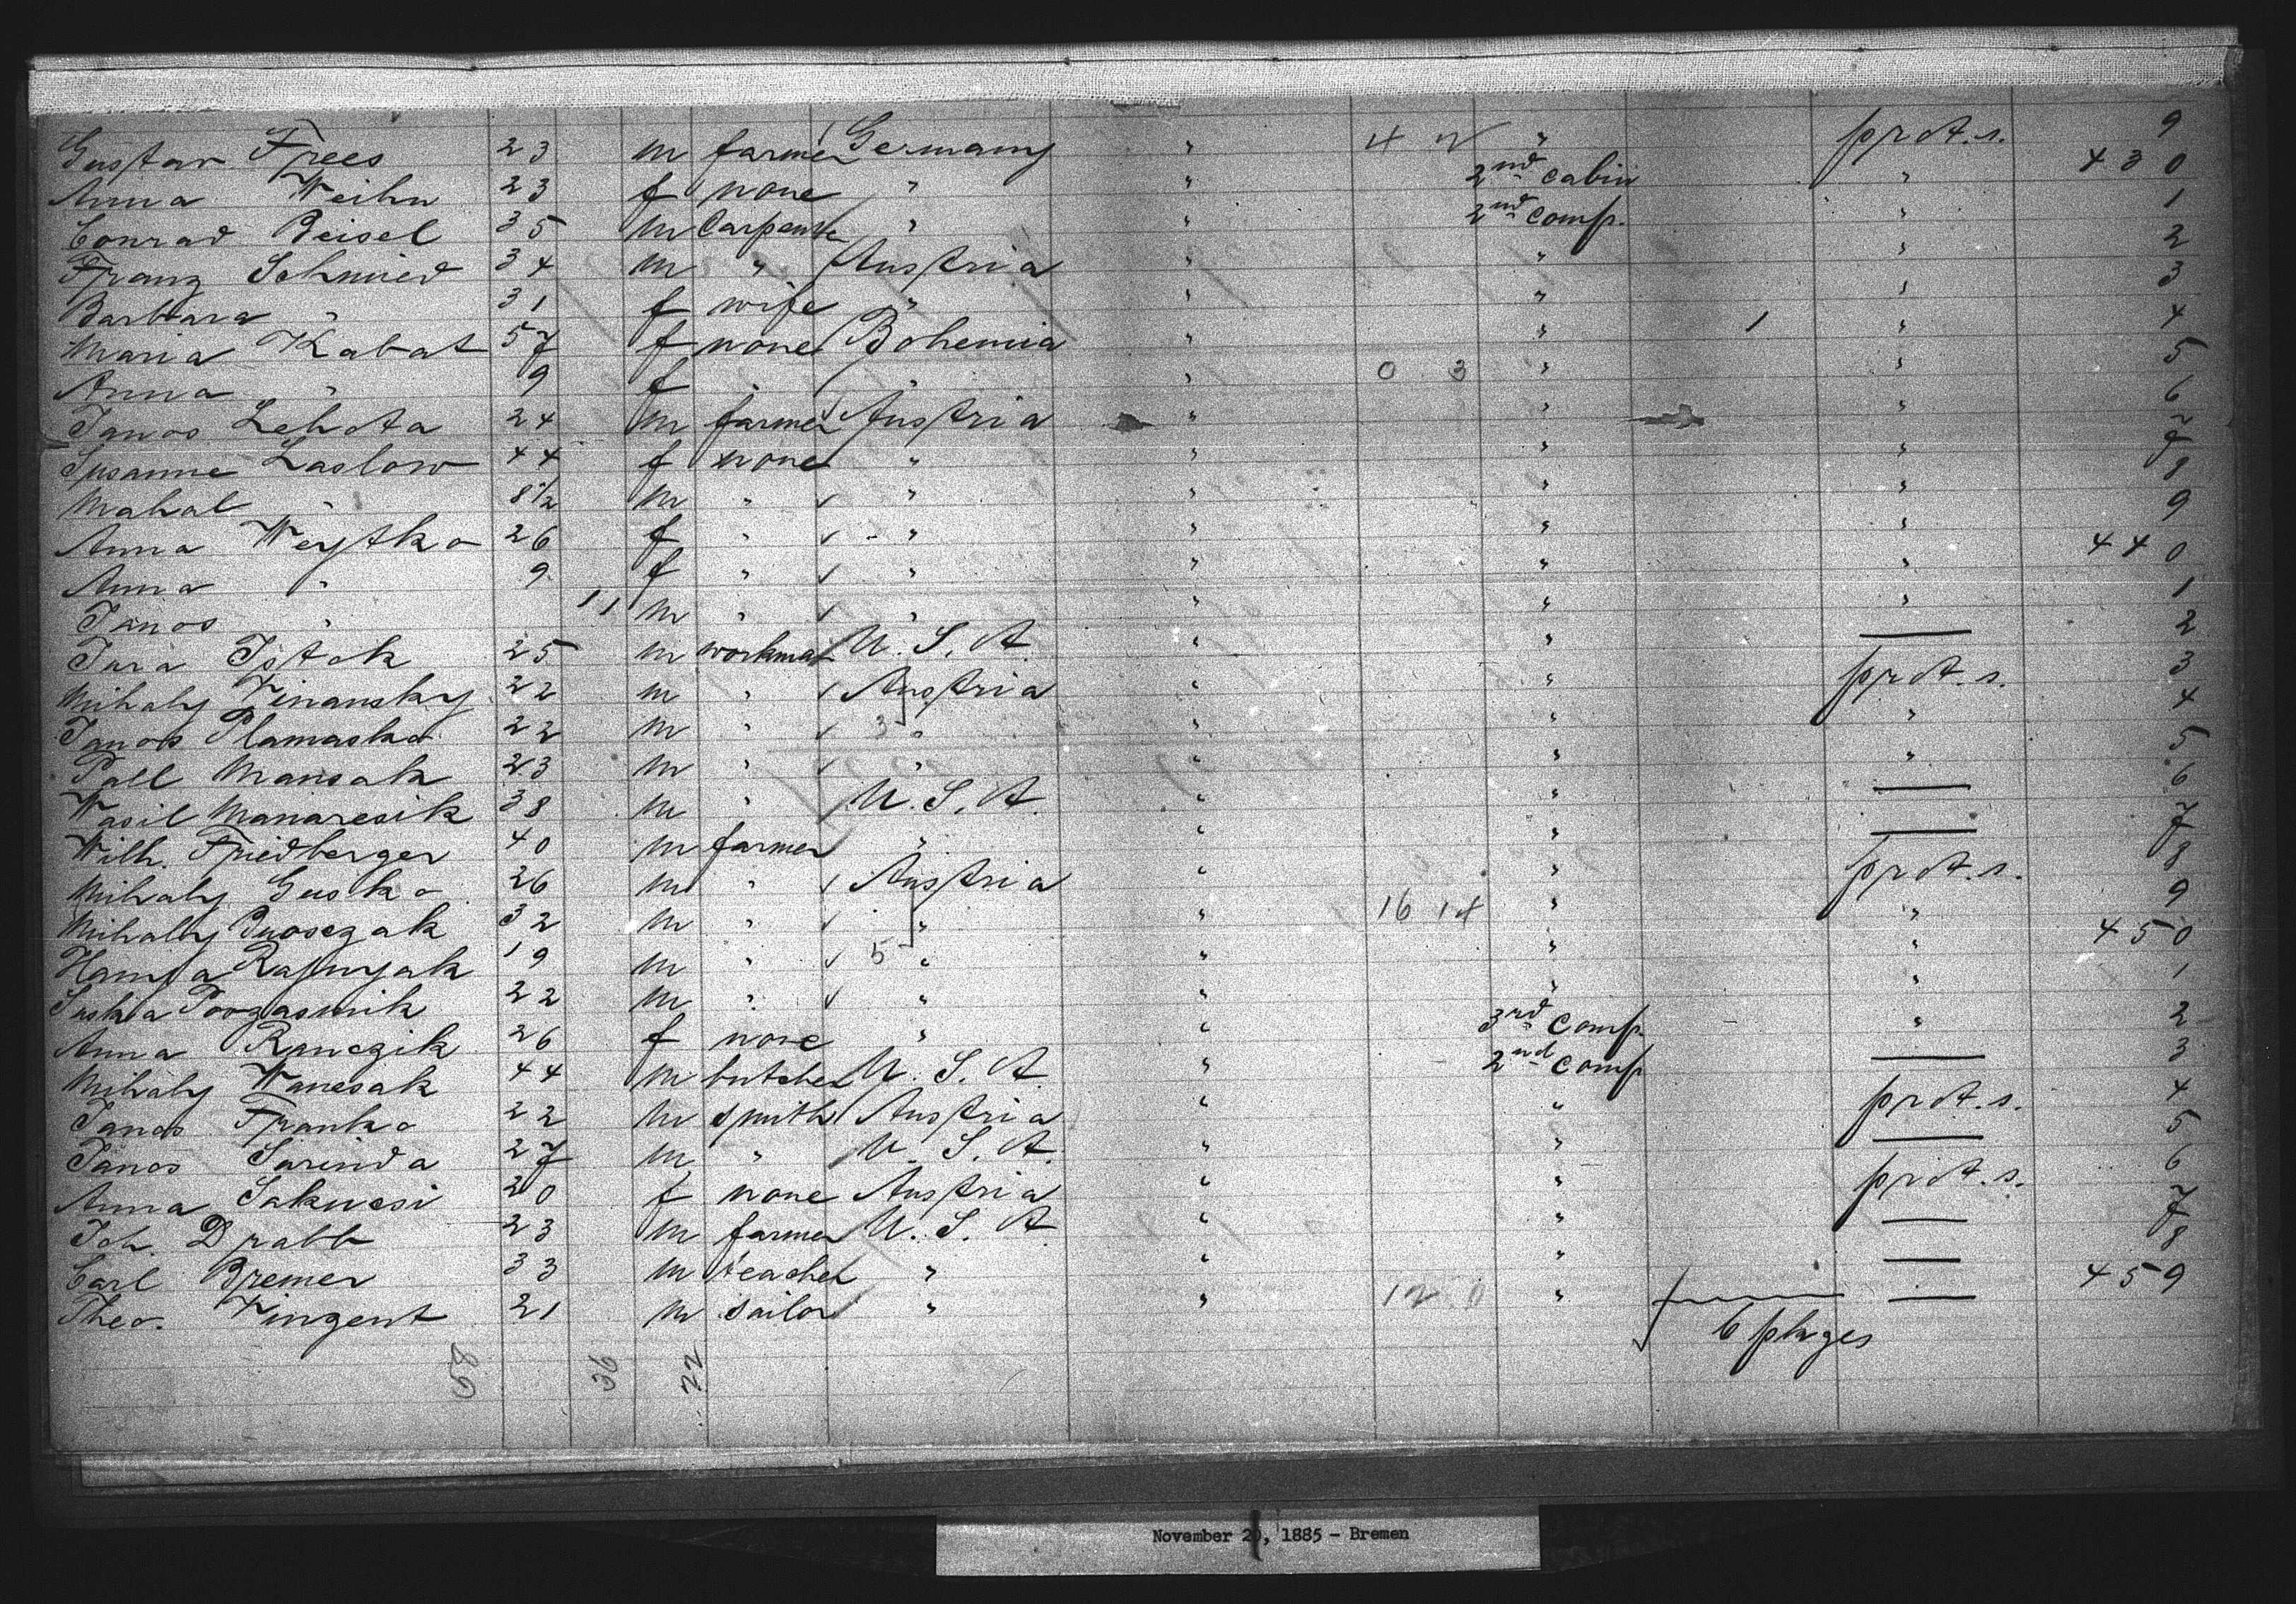 Gustav Frees 23 m farmer Germany " 4 2 " prot. s. 9
Anna Weihn 23 f none " " 2nd cabin " 430
Conrad Beisel 35 m Carpenter " " 2nd comp. " 1
Franz Schmied 34 m " Austria " " " 2
Barbara " 31 f wife " " " " 3
Maria Kabat 57 f none Bohemia " " 1 " 4
Anna " 9 f " " " 0 3 " " 5
Janos Lehota 24 m farmer Austria " " " 6
Susanne Laslow 44 f none " " " " 7
Mahal " 8 1/2 m " " " " " 8
Anna Weytko 26 f " " " " " 9
Anna " 9 f " " " " " 440
Janos " 11 m " " " " " 1
Jura Istok 25 m workman U. S. A. " " — 2
Mihaly Vinansky 22 m " Austria " " prot. s. 3
Janos Plamasko 22 m " 3 " " " " 4
Pall Mansak 23 m " " " " " 5
Wasil Manaresik 38 m " U. S. A. " " — 6
Wilh. Friedberger 40 m farmer " " " — 7
Mihaly Gusko 26 m " Austria " " prot. s. 8
Mihaly 32 m " " " 16 14 " " 9
19 m " 5 " " " " 450
22 m " " " " " 1
Anna Ranczik 26 f none " " 3rd comp. " 2
Mihaly Wanesak 44 m butcher U. S. A. " 2nd comp — 3
Janos Franko 22 m smith Austria " " prot. s. 4
Janos Sarinda 27 m " U. S. A. " " — 5
Anna Sakucsi 20 f none Austria " " prot. s. 6
Joh. Drabb 23 m farmer U. S. A. " " — 7
Carl Bremer 33 m teacher " " " — 8
Theo. Vinzent 21 m sailor " " 12 0 " — 459
6 phges
58 36 22
November 20, 1885 - Bremen